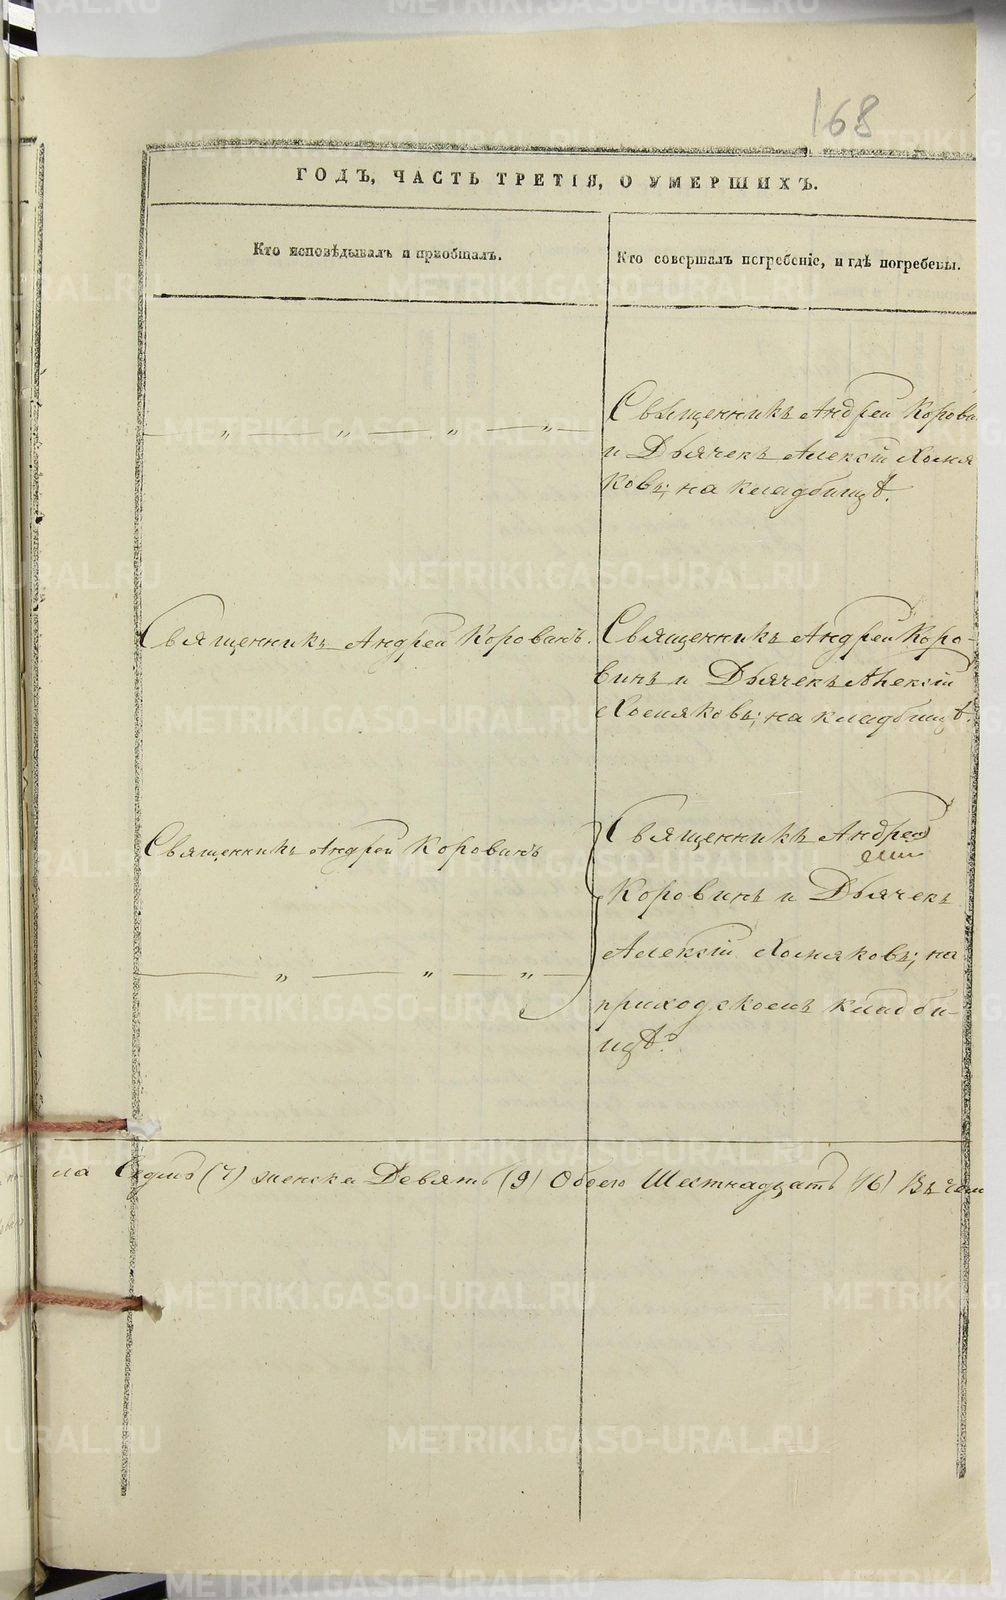 168
ГОДЪ, ЧАСТЬ ТРЕТІЯ, О УМЕРШИХЪ.
Кто исповѣдывалъ и пріобщалъ.
Кто совершалъ погребеніе, и гдѣ погребены.
Священникъ Андрей Корови
и Дьячекъ Алексѣй Хомя
ковъ; на кладбищѣ.
Священникъ Андрей Коровинъ.
Священникъ Андрей Коро-
винъ и Дьячекъ Алексѣй
Хомяковъ; на кладбищѣ.
Священникъ Андрей Коровинъ
Священникъ Андрей
Коровинъ и Дьячекъ
Алексѣй Хомяковъ; на
приходскомъ кладби-
щѣ.
ла Седмь (7) женска Девять (9) Обоего Шестнадцать (16) Въ чем
METRIKI.GASO-URAL.RU